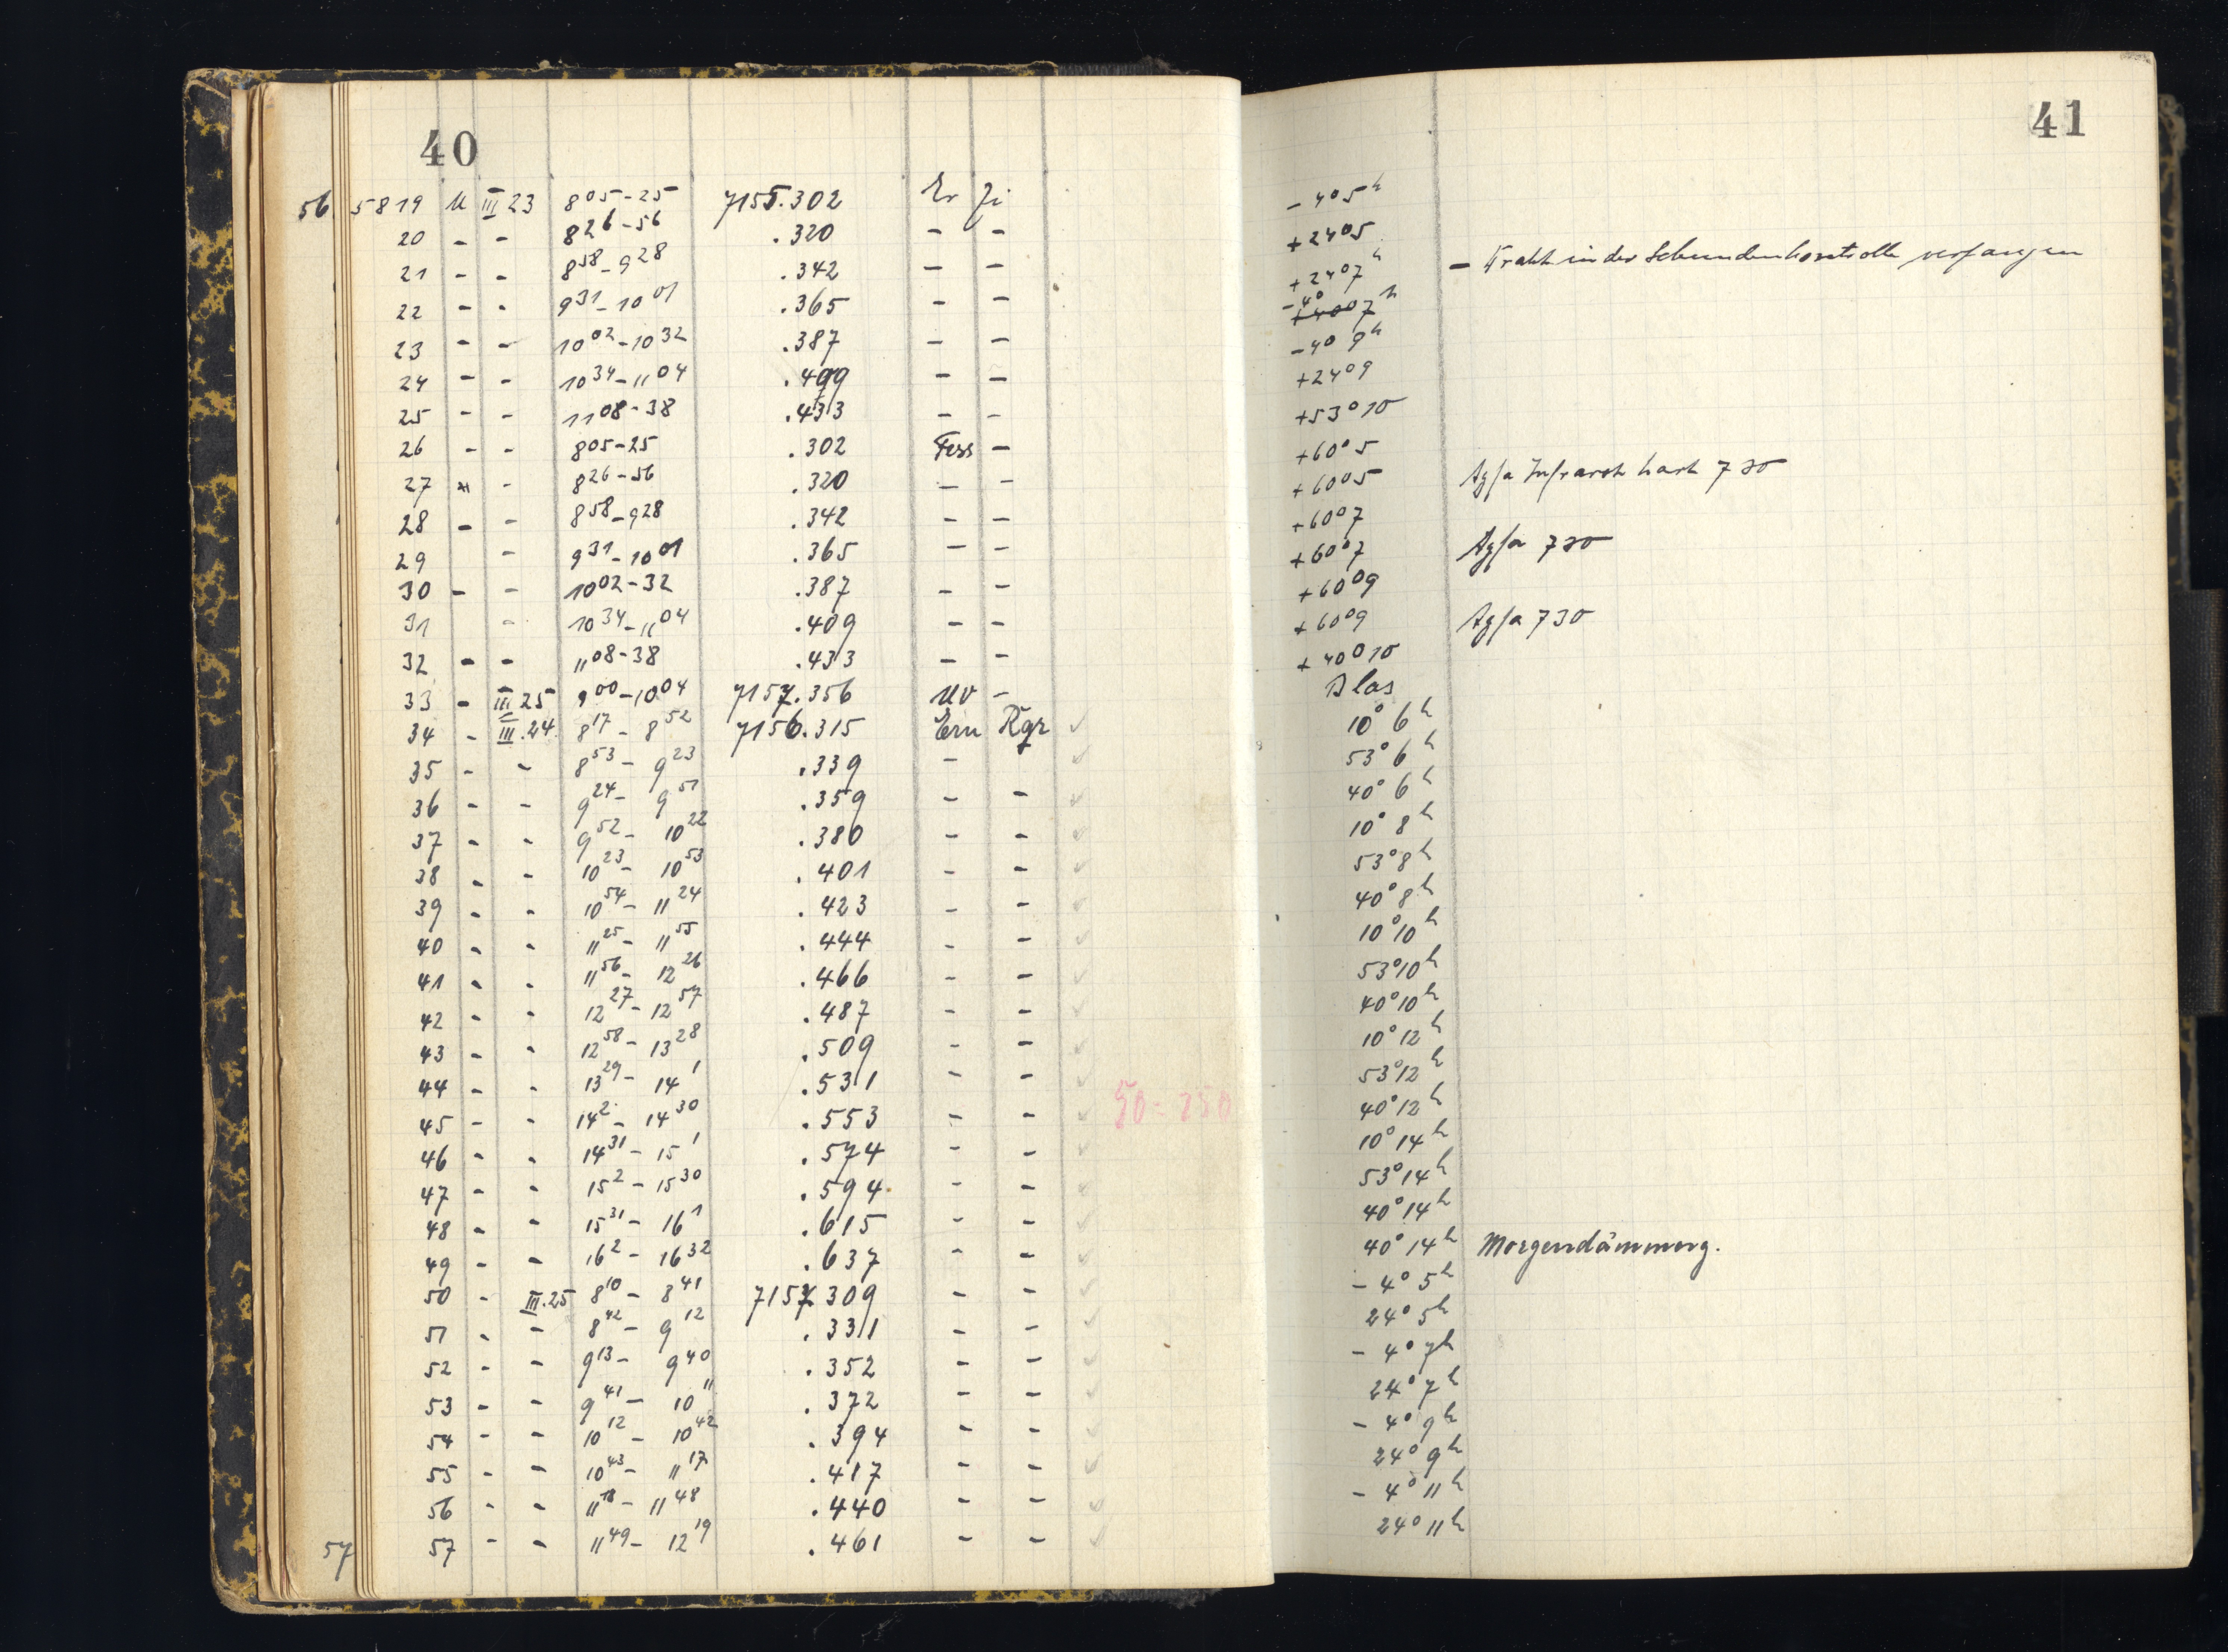 40
56 5819 U III 23 8 05-25 7155.302 Er Ji
20 - - 8 26-56 .320 - -
21 - - 8 58-9 28 .342 - -
22 - - 9 31-10 01 .365 - -
23 - - 10 02-10 32 .387 - -
24 - - 10 34-11 04 .499 - -
25 - - 11 08-38 .433 - -
26 - - 8 05-25 .302 Fess -
27 - - 8 26-56 .320 - -
28 - - 8 58-9 28 .342 - -
29 - 9 31-10 01 .365 - -
30 - - 10 02-32 .387 - -
31 - 10 34-11 04 .409 - -
32 - - 11 08-38 .433 - -
33 - III 25 9 00-10 04 7157.356 UV -
34 - III.24. 8 17 - 8 52 7156.315 Ern Rgr ✓
35 - - 8 53 - 9 23 .339 - ✓
36 - - 9 24 - 9 51 .359 - - ✓
37 - - 9 52 - 10 22 .380 - - ✓
38 - - 10 23 - 10 53 .401 - - ✓
39 - - 10 54 - 11 24 .423 - - ✓
40 - - 11 25 - 11 55 .444 - - ✓
41 - - 11 56 - 12 26 .466 - - ✓
42 - - 12 27 - 12 57 .487 - - ✓
43 - - 12 58 - 13 28 .509 - - ✓
44 - - 13 29 - 14 1 .531 - - ✓
45 - - 14 2 - 14 30 .553 - - ✓ 50 = 250
46 - - 14 31 - 15 1 .574 - - ✓
47 - - 15 2 - 15 30 .594 - - ✓
48 - - 15 31 - 16 1 .615 - - ✓
49 - - 16 2 - 16 32 .637 - - ✓
50 - III.25 8 10 - 8 41 7157.309 - - ✓
51 - - 8 42 - 9 12 .331 - - ✓
52 - - 9 13 - 9 40 .352 - - ✓
53 - - 9 41 - 10 11 .372 - - ✓
54 - - 10 12 - 10 42 .394 - - ✓
55 - - 10 43 - 11 17 .417 - - ✓
56 - - 11 18 - 11 48 .440 - - ✓
57 57 - - 11 49 - 12 19 .461 - - ✓
41
- 4° 5h
+ 24° 5
+ 24° 7h - Draht in der Sekundenkontrolle verfangen
- 4° 7h
- 4° 9h
+ 24° 9
+ 53° 10
+ 60° 5
+ 60° 5 Agfa Infrarot hart 730
+ 60° 7
+ 60° 7 Agfa 730
+ 60° 9
+ 60° 9 Agfa 730
+ 40° 10
Blas
10° 6h
53° 6h
40° 6h
10° 8h
53° 8h
40° 8h
10° 10h
53° 10h
40° 10h
10° 12h
53° 12h
40° 12h
10° 14h
53° 14h
40° 14h
40° 14h Morgendämmerg.
- 4° 5h
24° 5h
- 4° 7h
24° 7h
- 4° 9h
24° 9h
- 4° 11h
24° 11h